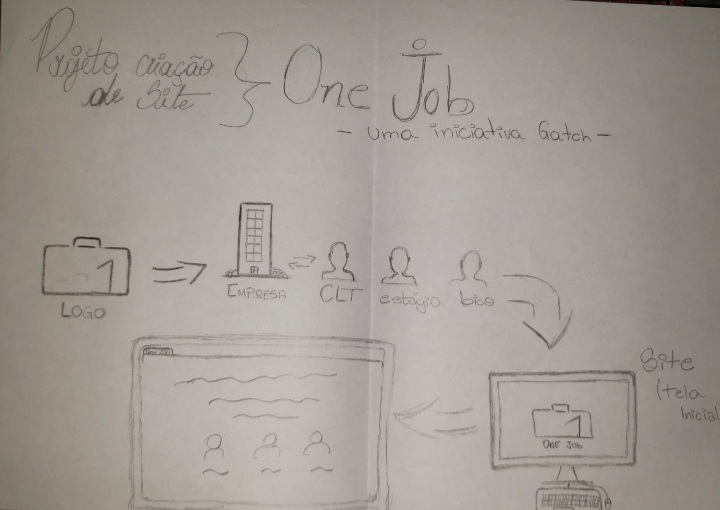 Projeto criação
de Site
One Job
- uma iniciativa Gatch -
1
LOGO
EMPRESA
CLT
estágio
bico
Site
(tela
Inicial
1
ONE JOB